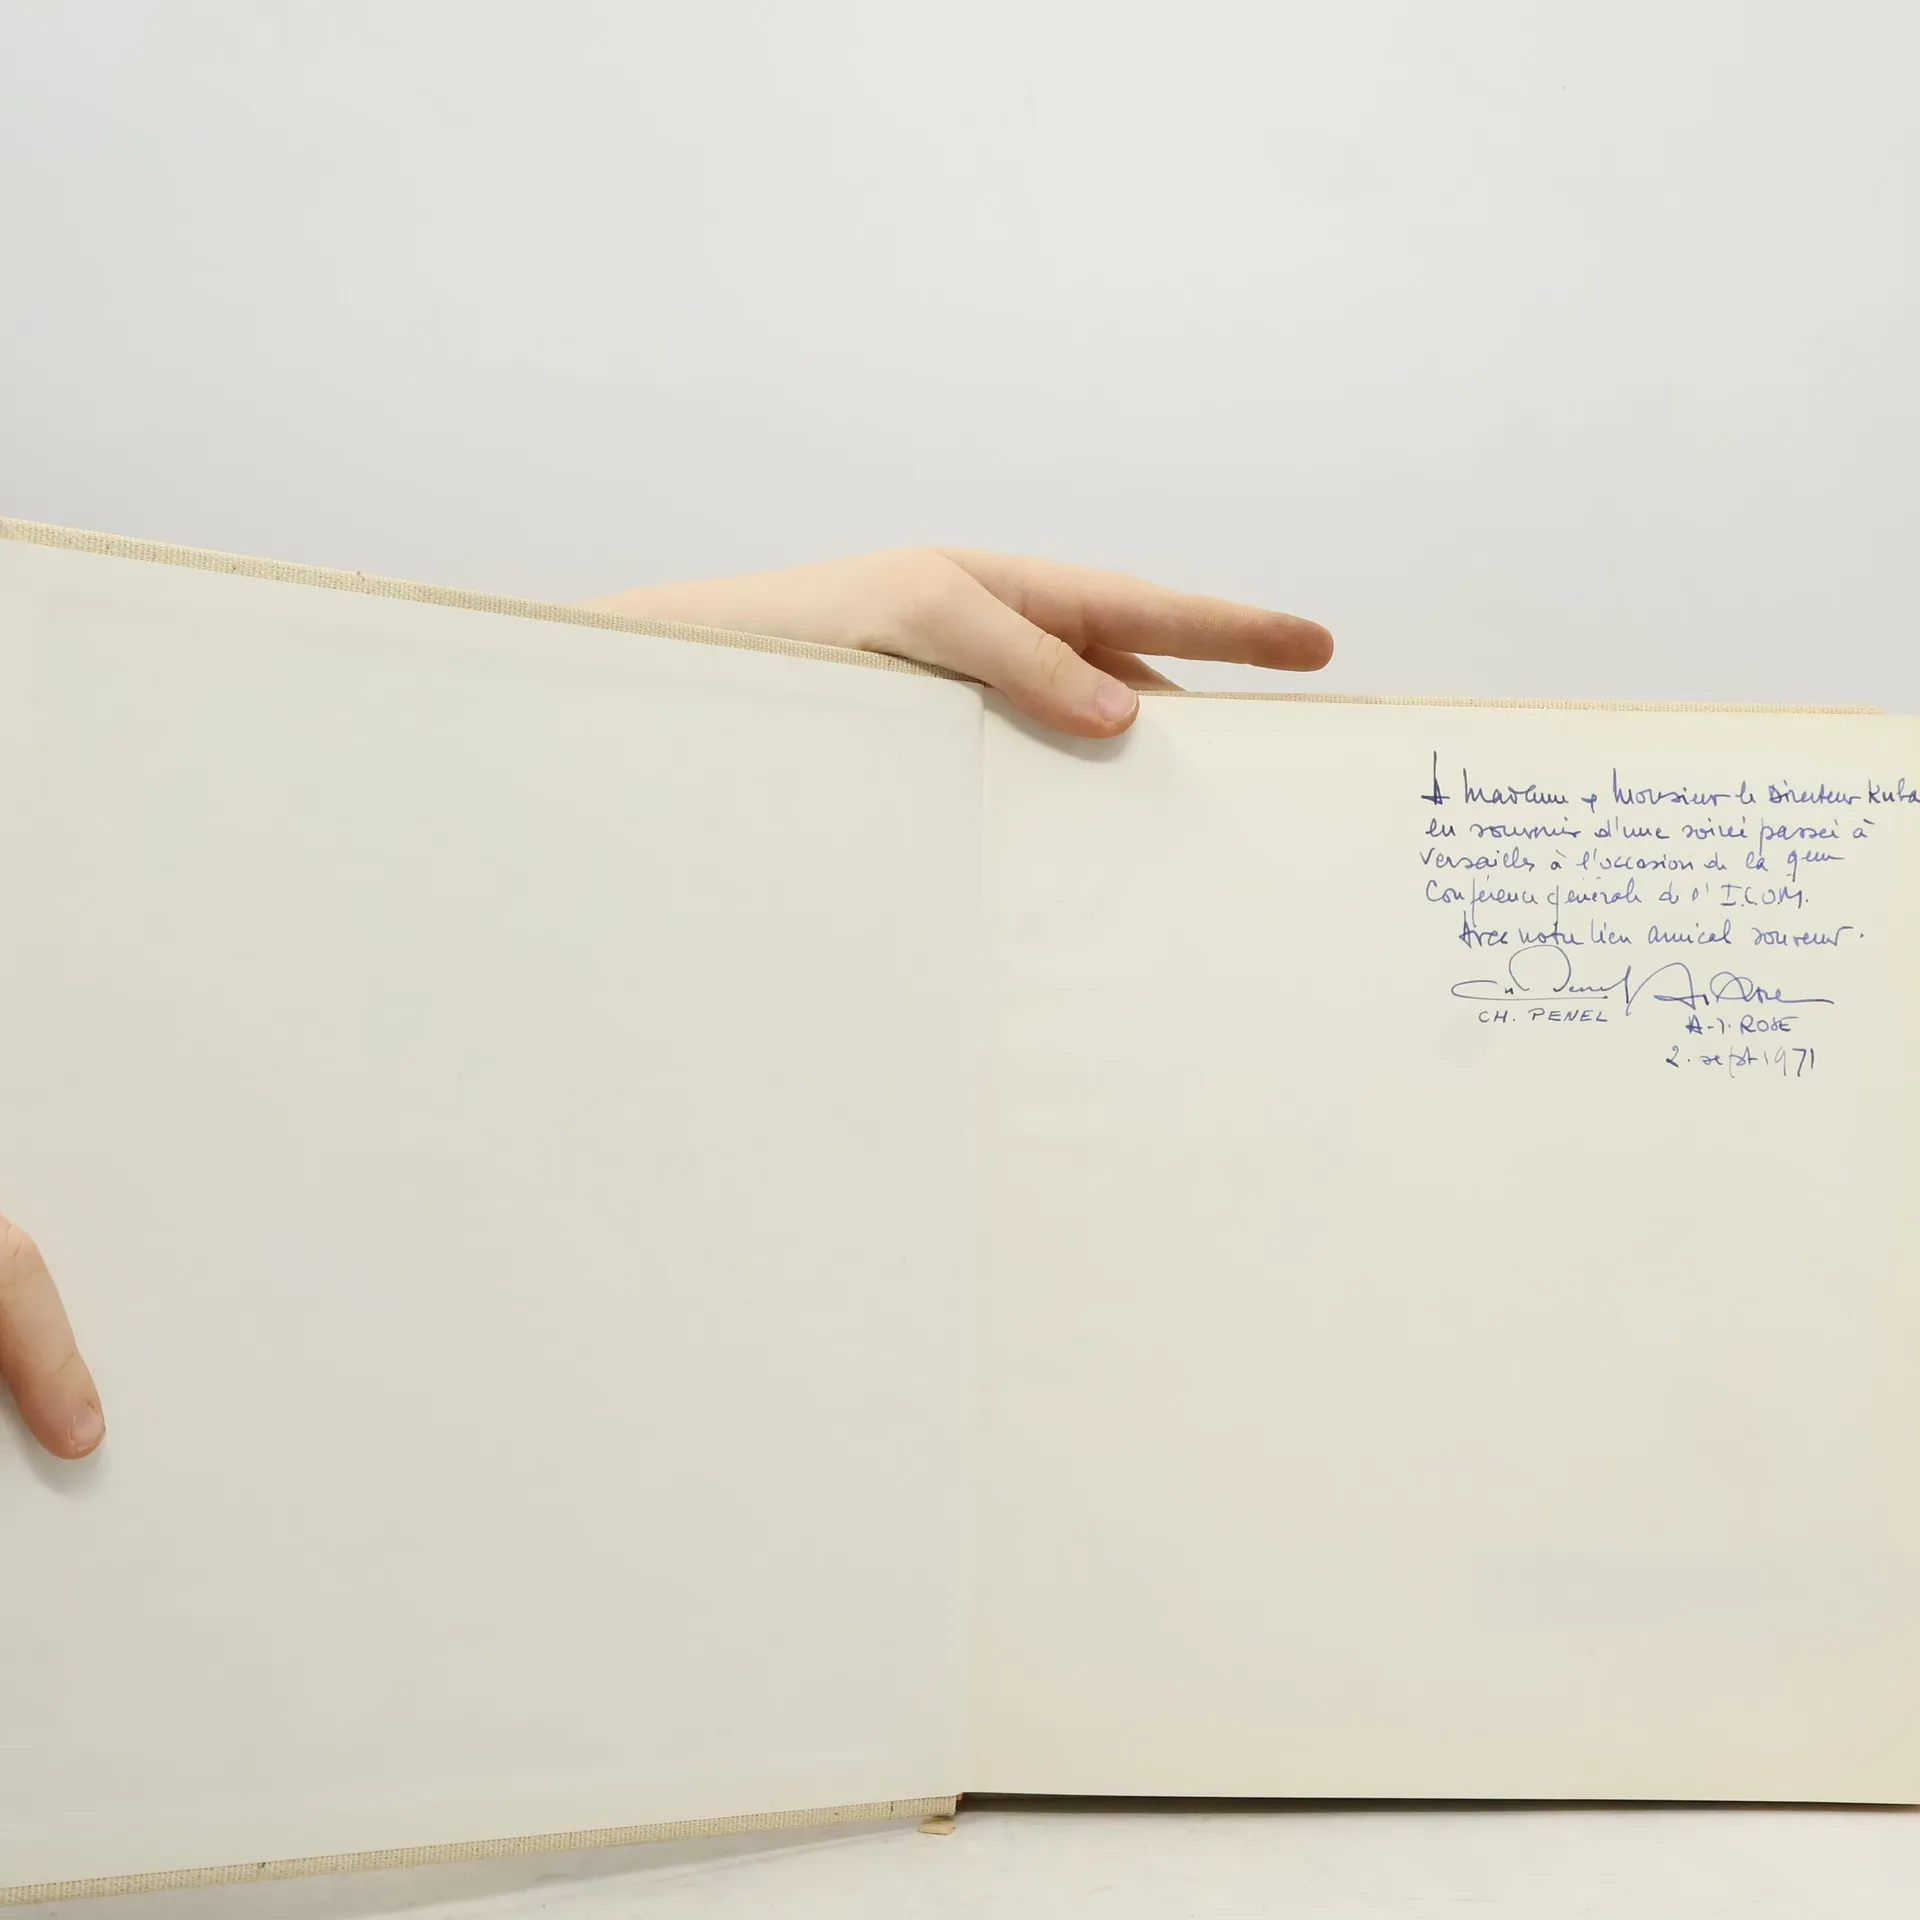 A Madame & Monsieur le Directeur Kuba
en souvenir d'une soirée passée à
Versailles à l'occasion de la 9eme
Conférence générale de l'I.C.O.M.
Avec notre lien amical
Ch Penel A.J. Rose
CH. PENEL A-J. ROSE
2. sept 1971